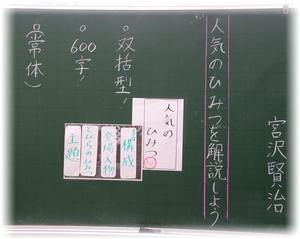 宮沢賢治
人気のひみつを解説しよう
人気の
ひみつ
構成
登場人物
とびらのひみつ
主題
○双括型!
○600字!
(常体)